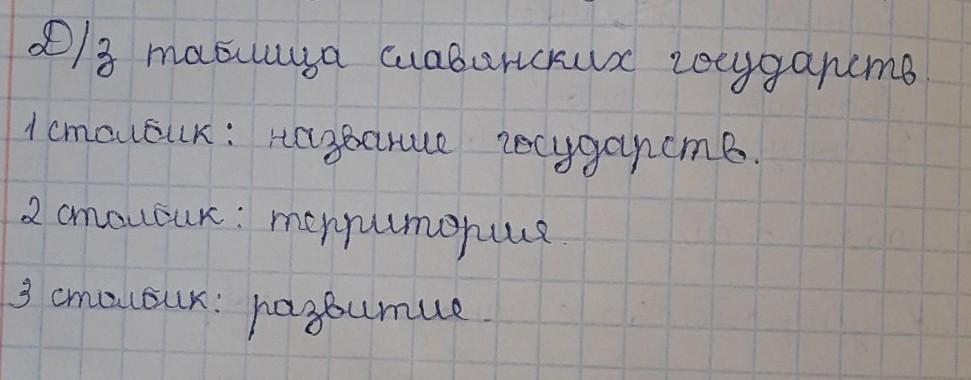 Д/з таблица славянских государств.
1 столбик: название государств.
2 столбик: территория.
3 столбик: развитие.